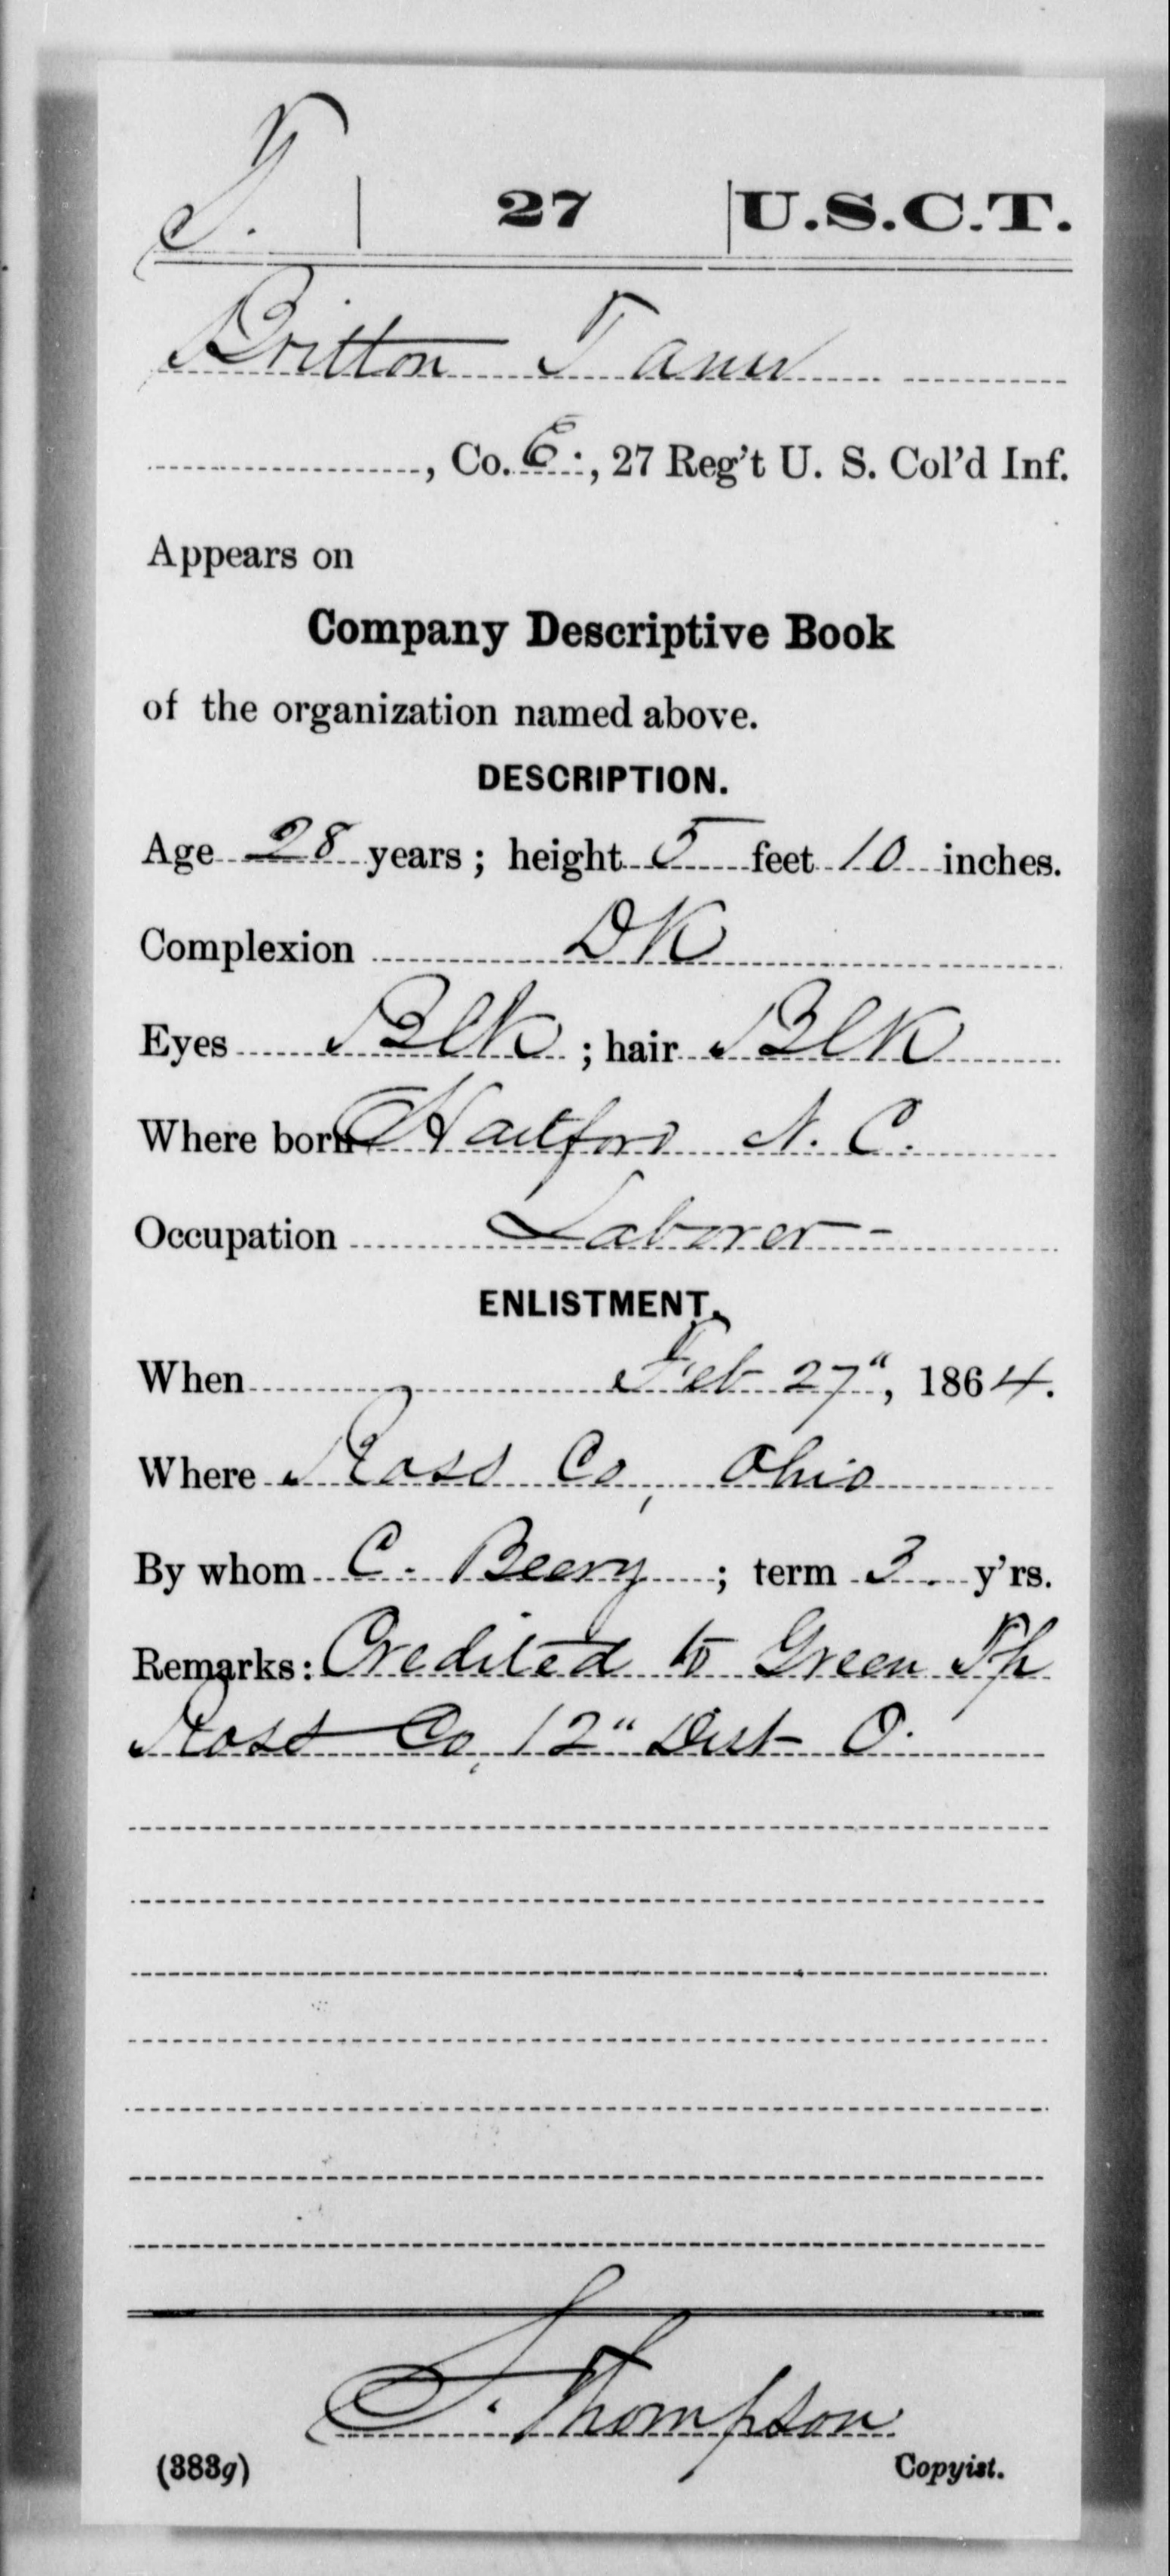 T. | 27 | U.S.C.T.
Britton Tann
, Co. E., 27 Reg't U. S. Col'd Inf.
Appears on
Company Descriptive Book
of the organization named above.
DESCRIPTION.
Age 28 years; height 5 feet 10 inches.
Complexion DK
Eyes Blk; hair Blk
Where born Hartford N. C.
Occupation Laborer -
ENLISTMENT.
When Feb 27", 1864.
Where Ross Co, Ohio
By whom C. Beery; term 3 y'rs.
Remarks: Credited to Green Tp
Ross Co, 12" Dist O.
Thompson
(383g) Copyist.